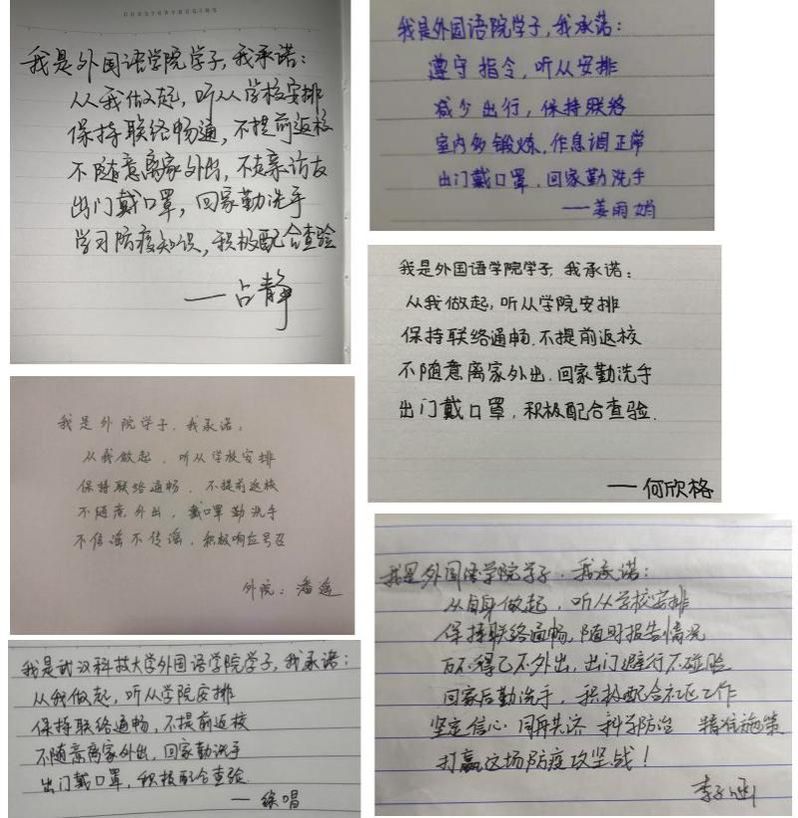 我是外国语学院学子,我承诺:
从我做起,听从学校安排
保持联络畅通,不提前返校
不随意离家外出,不走亲访友
出门戴口罩,回家勤洗手
学习防疫知识,积极配合查验
——占静
我是外国语院学子,我承诺:
遵守指令,听从安排
减少出行,保持联络
室内多锻炼,作息调正常
出门戴口罩,回家勤洗手
——姜雨娟
我是外国语学院学子,我承诺:
从我做起,听从学院安排
保持联络通畅,不提前返校
不随意离家外出,回家勤洗手
出门戴口罩,积极配合查验.
——何欣格
我是外院学子,我承诺:
从我做起,听从学校安排
保持联络通畅,不提前返校
不随意外出,戴口罩勤洗手
不信谣不传谣,积极响应号召
外院:潘遥
我是外国语学院学子,我承诺:
从自身做起,听从学校安排
保持联络通畅,随时报告情况
万不得已不外出,出门避行不碰脸
回家后勤洗手,积极配合社区工作
坚定信心 同舟共济 科学防治 精准施策
打赢这场防疫攻坚战!
李子涵
我是武汉科技大学外国语学院学子,我承诺:
从我做起,听从学院安排
保持联络通畅,不提前返校
不随意离家外出,回家勤洗手
出门戴口罩,积极配合查验
——徐唱